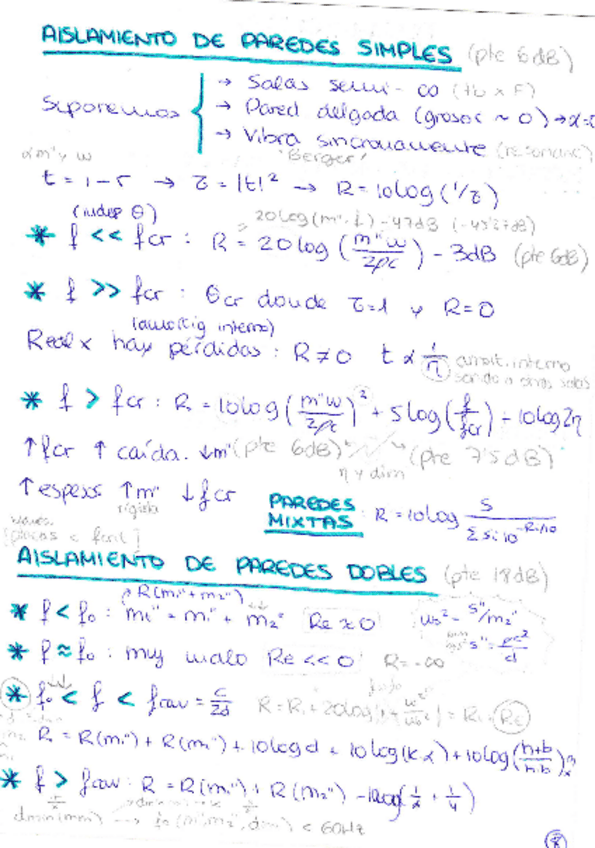 AISLAMIENTO DE PAREDES SIMPLES (pte 6dB)
Suponemos
→ Salas semi-∞ (Tb x F)
→ Pared delgada (grosor ~ 0) →
→ Vibra sincronamente (resonanc)
α m'' y w
"Berger"
t = 1 - r → τ = |t|² → R = 10log(1/τ)
(indep θ)
20log(m''·f) - 47dB
* f << fcr : R = 20log(m''w/2ρc) - 3dB (pte 6dB)
* f >> fcr : θcr donde τ=1 y R=0
(amortig interno)
Real x hay pérdidas : R≠0 t α 1/η amort. interno
sonido a otras salas
* f > fcr : R = 10log(m''w/2ρc)² + 5log(f/fcr) + 10log2η
↑fcr ↑ caída. ↓m'' (pte 6dB) (pte 7'5dB)
η y dim
↑espesor ↑m'' ↓fcr
rígida
PAREDES MIXTAS : R = 10log S / Σ Si·10^-Ri/10
AISLAMIENTO DE PAREDES DOBLES (pte 18dB)
R(m1''+m2'')
* f < f0 : mt'' = m1'' + m2'' Re ≈ 0 w0² = s''/m2''
s'' = ρc²/d
* f ≈ f0 : muy malo Re << 0 R = -∞
* f0 < f < fcav = c/2d
R = R(m1'') + R(m2'') + 10log d + 10log(k α) + 10log
* f > fcav : R = R(m1'') + R(m2'') - 10log(1/α + 1/4)
dmin(mm) → f0 (m1'', m2'', dmin) < 60Hz
8